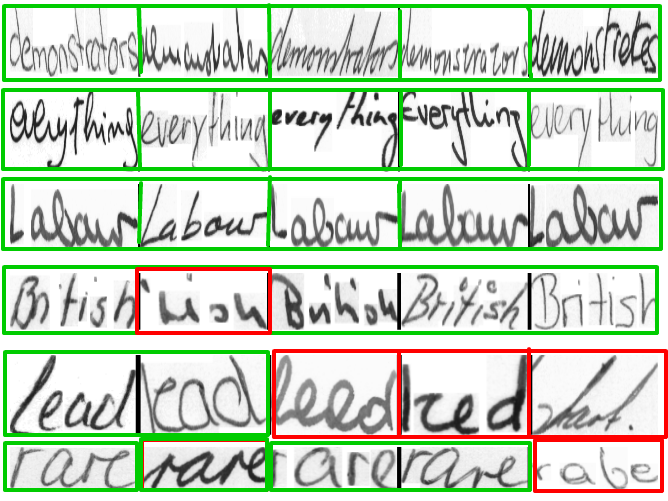 demonstrators demonstrators demonstrators demonstrators demonstrates
everything everything everything Everything everything
Labour Labour Labour Labour Labour
British British British British
Lead lead
rare rare rare rare rabe